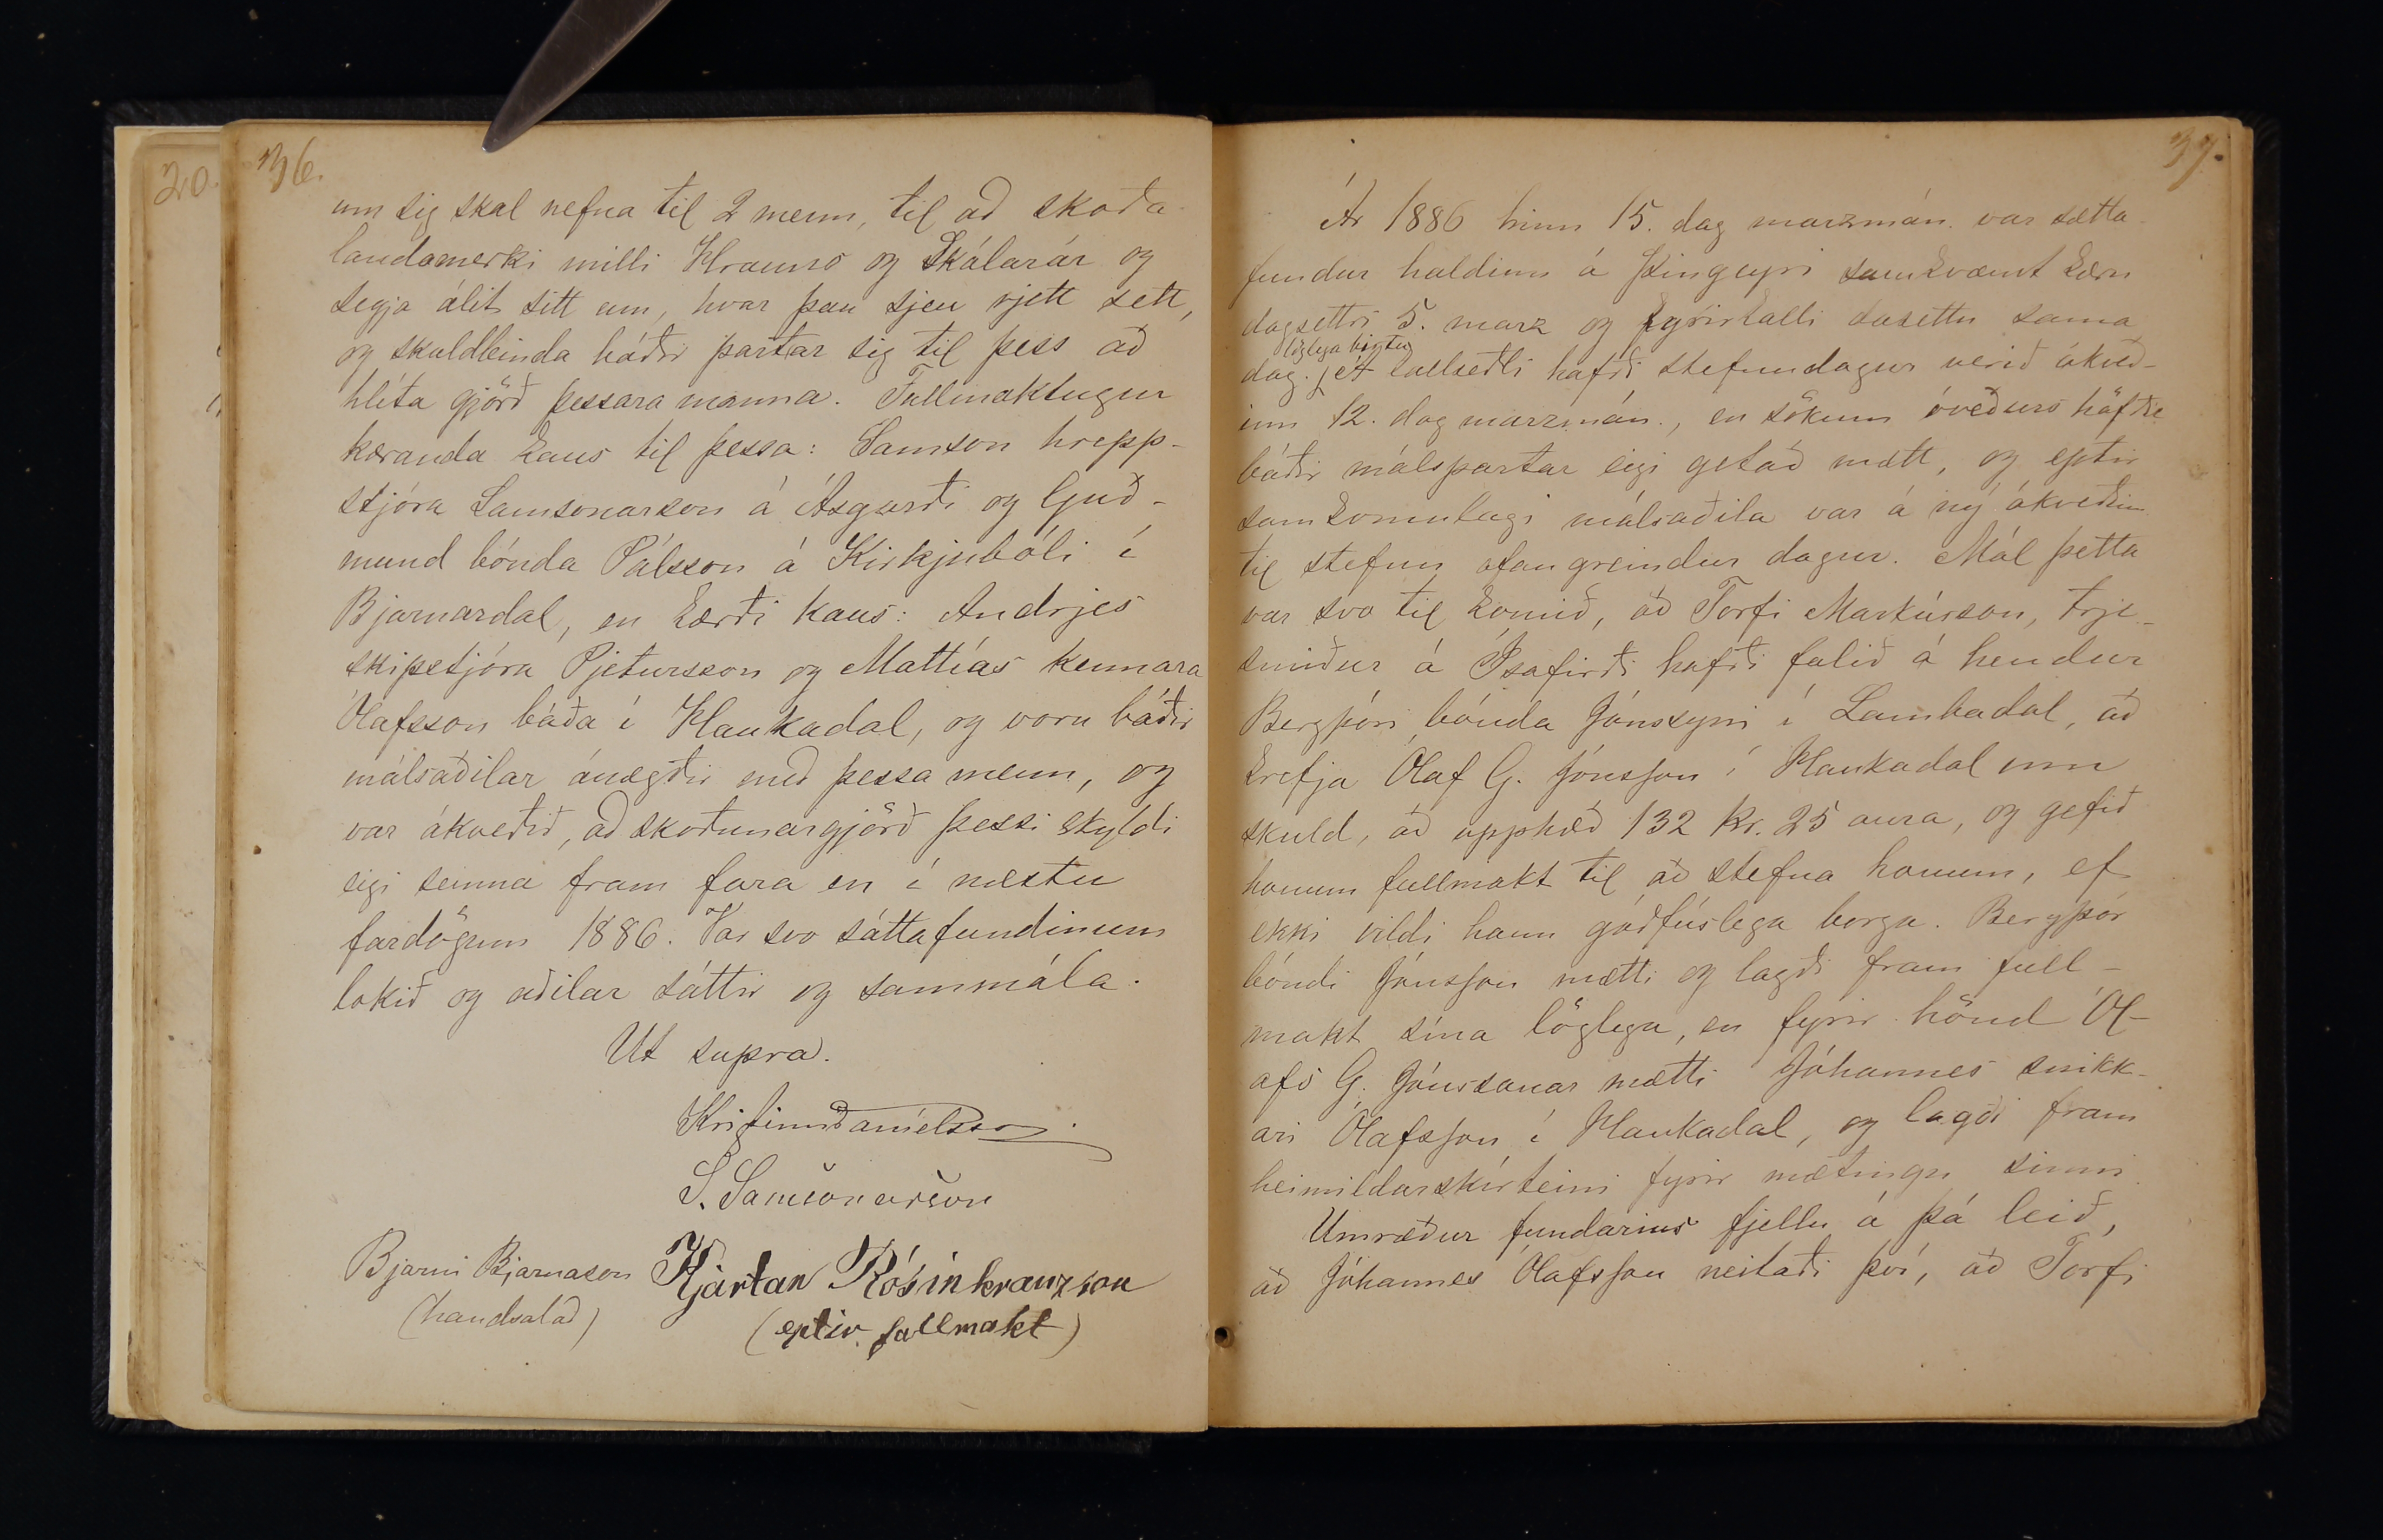 20.
36.
um sig skal nefna til 2 menn, til að skoða
landamerki milli Hrauns og Skálarár og
segja álit sitt um, hvar þau sjeu rjett sett,
og skuldbinda báðir partar sig til þess að
hlíta gjörð þessara manna. Fullmaktugur
kæranda kaus til þessa: Samson hrepp-
stjóra Samsonarson á Ásgarði og Guð-
mund bónda Pálsson á Kirkjubóli í
Bjarnardal, en kærði kaus: Andrjes
skipstjóra Pjetursson og Mattías kennara
Ólafsson báða í Haukadal, og voru báðir
málsaðilar ánægðir með þessa menn, og
var ákveðið, að skoðunargjörð þessi skyldi
eigi seinna fram fara en í næstu
fardögum 1886. Var svo sáttafundinum
lokið og aðilar sáttir og sammála.
Ut supra.
Kristinn Daníelsson.
S. Samsonarson
Bjarni Bjarnason Kjartan Rósinkranzson
(handsalað) (eptir fullmakt)
37.
Ár 1886 hinn 15. dag marzmán. var sátta-
fundur haldinn á Þingeyri samkvæmt kæru
dagsettri 5. marz og fyrirkalli dasettu sama
löglega birtu
dag. Á kallseðli hafði stefnudagur verið ákveð-
inn 12. dag marzmán., en sökum óveðurs höfðu
báðir málspartar eigi getað mætt, og eptir
samkomulagi málsaðila var á ný ákveðinn
til stefnu ofangreindur dagur. Mál þetta
var svo til komið, að Torfi Markússon, trje-
smiður á Ísafirði hafði falið á hendur
Bergþóri bónda Jónssyni í Lambadal, að
krefja Ólaf G. Jónsson í Haukadal um
skuld, að upphæð 132 kr. 25 aura, og gefið
honum fullmakt til að stefna honum, ef
ekki vildi hann góðfúslega borga. Bergþór
bóndi Jónsson mætti og lagði fram full-
makt sína löglega, en fyrir hönd Ól-
afs G. Jónssonar mætti Jóhannes snikk-
ari Ólafsson í Haukadal, og lagði fram
heimildarskírteini fyrir mætingu sinni.
Umræður fundarins fjellu á þá leið,
að Jóhannes Ólafsson neitaði því, að Torfi